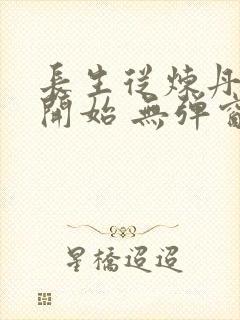 長生從煉丹
開始 無彈窗
星橋迢迢